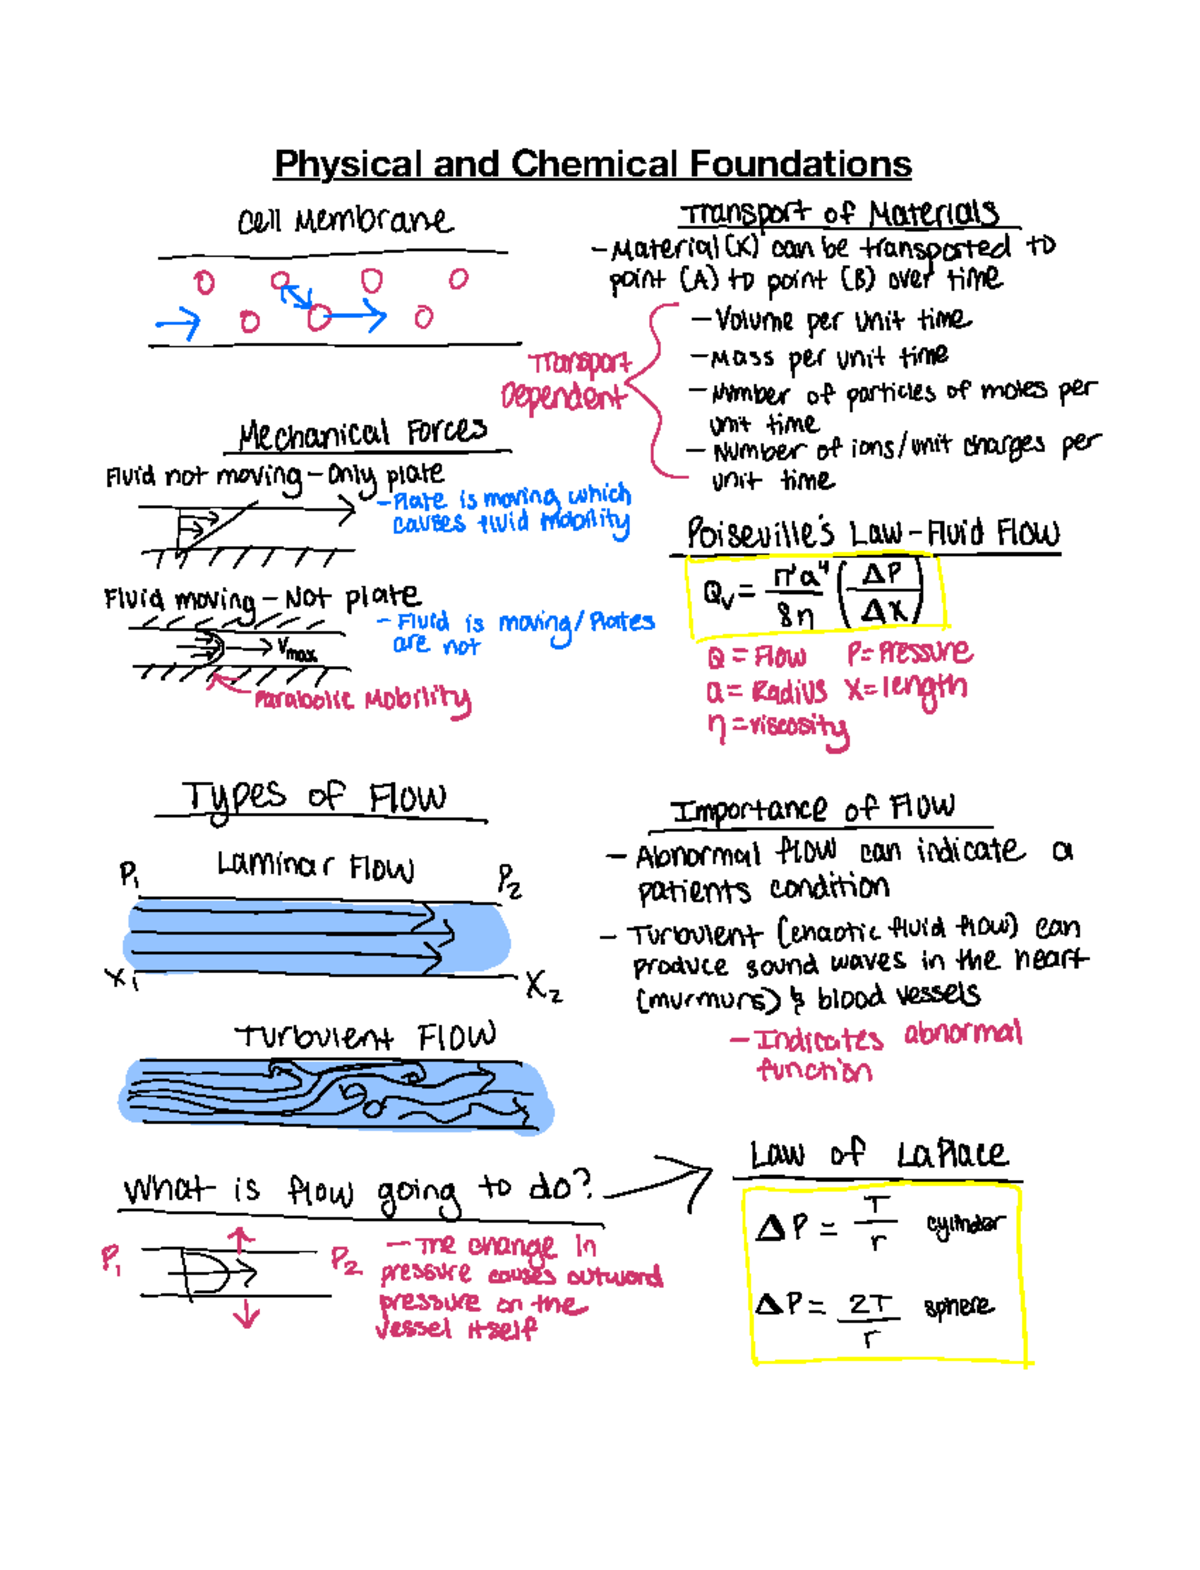 Physical and Chemical Foundations
Cell Membrane
Mechanical Forces
Fluid not moving – Only plate
– Plate is moving which
causes fluid mobility
Fluid moving – Not plate
– Fluid is moving/Plates
are not
Vmax
Parabolic Mobility
Transport of Materials
– Material (X) can be transported to
point (A) to point (B) over time
Transport
Dependent
– Volume per unit time
– Mass per unit time
– Number of particles of moles per
unit time
– Number of ions/unit charges per
unit time
Poiseville's Law – Fluid Flow
Qv = πa⁴/8η (ΔP/ΔX)
Q = Flow P = Pressure
a = Radius X = length
η = viscosity
Types of Flow
Laminar Flow
P₁ P₂
X₁ X₂
Turbulent Flow
Importance of Flow
– Abnormal flow can indicate a
patients condition
– Turbulent (chaotic fluid flow) can
produce sound waves in the heart
(murmurs) & blood vessels
– Indicates abnormal
function
What is flow going to do?
P₁ P₂
– The change in
pressure causes outward
pressure on the
vessel itself
Law of LaPlace
ΔP = T/r cylinder
ΔP = 2T/r sphere